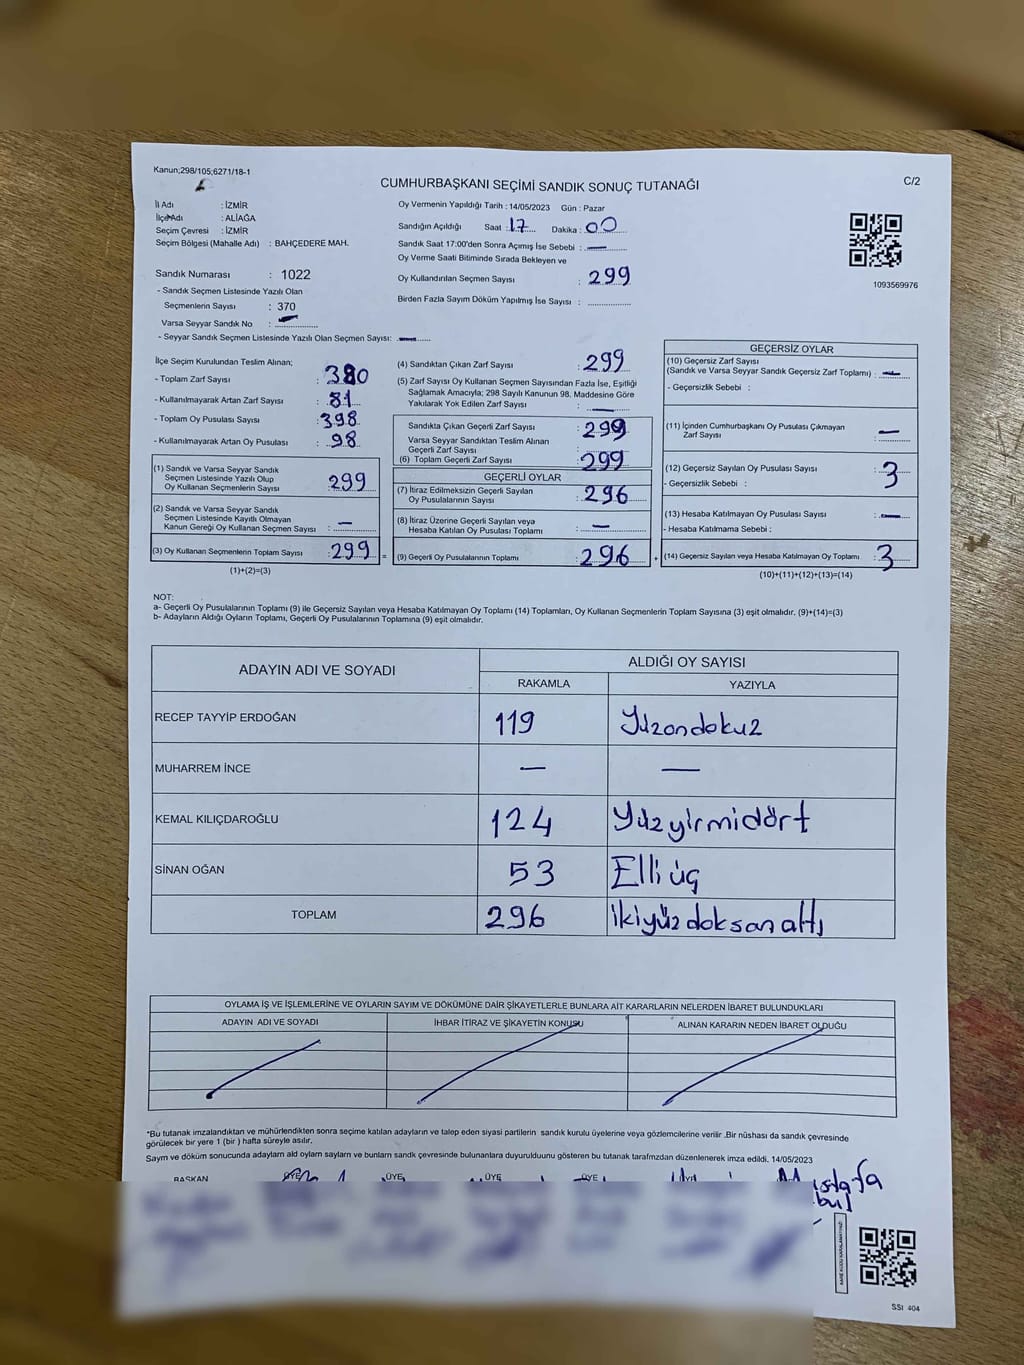 Kanun;298/105;6271/18-1
CUMHURBAŞKANI SEÇİMİ SANDIK SONUÇ TUTANAĞI
C/2
İl Adı : İZMİR
İlçe Adı : ALİAĞA
Seçim Çevresi : İZMİR
Seçim Bölgesi (Mahalle Adı) : BAHÇEDERE MAH.
Sandık Numarası : 1022
- Sandık Seçmen Listesinde Yazılı Olan
Seçmenlerin Sayısı : 370
Varsa Seyyar Sandık No :
- Seyyar Sandık Seçmen Listesinde Yazılı Olan Seçmen Sayısı:
Oy Vermenin Yapıldığı Tarih : 14/05/2023 Gün : Pazar
Sandığın Açıldığı Saat : 17 Dakika : 00
Sandık Saat 17:00'den Sonra Açımış İse Sebebi : —
Oy Verme Saati Bitiminde Sırada Bekleyen ve
Oy Kullandırılan Seçmen Sayısı : 299
Birden Fazla Sayım Döküm Yapılmış İse Sayısı :
1093569976
İlçe Seçim Kurulundan Teslim Alınan;
- Toplam Zarf Sayısı : 380
- Kullanılmayarak Artan Zarf Sayısı : 81
- Toplam Oy Pusulası Sayısı : 398
- Kullanılmayarak Artan Oy Pusulası : 98
(1) Sandık ve Varsa Seyyar Sandık
Seçmen Listesinde Yazılı Olup
Oy Kullanan Seçmenlerin Sayısı : 299
(2) Sandık ve Varsa Seyyar Sandık
Seçmen Listesinde Kayıtlı Olmayan
Kanun Gereği Oy Kullanan Seçmen Sayısı : —
(3) Oy Kullanan Seçmenlerin Toplam Sayısı : 299 =
(1)+(2)=(3)
(4) Sandıktan Çıkan Zarf Sayısı : 299
(5) Zarf Sayısı Oy Kullanan Seçmen Sayısından Fazla İse, Eşitliği
Sağlamak Amacıyla; 298 Sayılı Kanunun 98. Maddesine Göre
Yakılarak Yok Edilen Zarf Sayısı : —
Sandıkta Çıkan Geçerli Zarf Sayısı : 299
Varsa Seyyar Sandıktan Teslim Alınan
Geçerli Zarf Sayısı
(6) Toplam Geçerli Zarf Sayısı : 299
GEÇERLİ OYLAR
(7) İtiraz Edilmeksizin Geçerli Sayılan
Oy Pusulalarının Sayısı : 296
(8) İtiraz Üzerine Geçerli Sayılan veya
Hesaba Katılan Oy Pusulası Toplamı : —
(9) Geçerli Oy Pusulalarının Toplamı : 296 +
GEÇERSİZ OYLAR
(10) Geçersiz Zarf Sayısı
(Sandık ve Varsa Seyyar Sandık Geçersiz Zarf Toplamı) : —
- Geçersizlik Sebebi :
(11) İçinden Cumhurbaşkanı Oy Pusulası Çıkmayan
Zarf Sayısı : —
(12) Geçersiz Sayılan Oy Pusulası Sayısı : 3
- Geçersizlik Sebebi :
(13) Hesaba Katılmayan Oy Pusulası Sayısı : —
- Hesaba Katılmama Sebebi :
(14) Geçersiz Sayılan veya Hesaba Katılmayan Oy Toplamı : 3
(10)+(11)+(12)+(13)=(14)
NOT:
a- Geçerli Oy Pusulalarının Toplamı (9) ile Geçersiz Sayılan veya Hesaba Katılmayan Oy Toplamı (14) Toplamları, Oy Kullanan Seçmenlerin Toplam Sayısına (3) eşit olmalıdır. (9)+(14)=(3)
b- Adayların Aldığı Oyların Toplamı, Geçerli Oy Pusulalarının Toplamına (9) eşit olmalıdır.
ADAYIN ADI VE SOYADI ALDIĞI OY SAYISI
RAKAMLA YAZIYLA
RECEP TAYYİP ERDOĞAN 119 Yüzondokuz
MUHARREM İNCE — —
KEMAL KILIÇDAROĞLU 124 Yüzyirmidört
SİNAN OĞAN 53 Elli üç
TOPLAM 296 ikiyüz doksan altı
OYLAMA İŞ VE İŞLEMLERİNE VE OYLARIN SAYIM VE DÖKÜMÜNE DAİR ŞİKAYETLERLE BUNLARA AİT KARARLARIN NELERDEN İBARET BULUNDUKLARI
ADAYIN ADI VE SOYADI İHBAR İTİRAZ VE ŞİKAYETİN KONUSU ALINAN KARARIN NEDEN İBARET OLDUĞU
*Bu tutanak imzalandıktan ve mühürlendikten sonra seçime katılan adayların ve talep eden siyasi partilerin sandık kurulu üyelerine veya gözlemcilerine verilir .Bir nüshası da sandık çevresinde
görülecek bir yere 1 (bir ) hafta süreyle asılır.
Sayım ve döküm sonucunda adayların aldı oyların sayları ve bunların sandık çevresinde bulunanlara duyurulduunu gösteren bu tutanak tarafmzdan düzenlenerek imza edildi. 14/05/2023
BAŞKAN ÜYE ÜYE ÜYE ÜYE
Mustafa
SSI 404